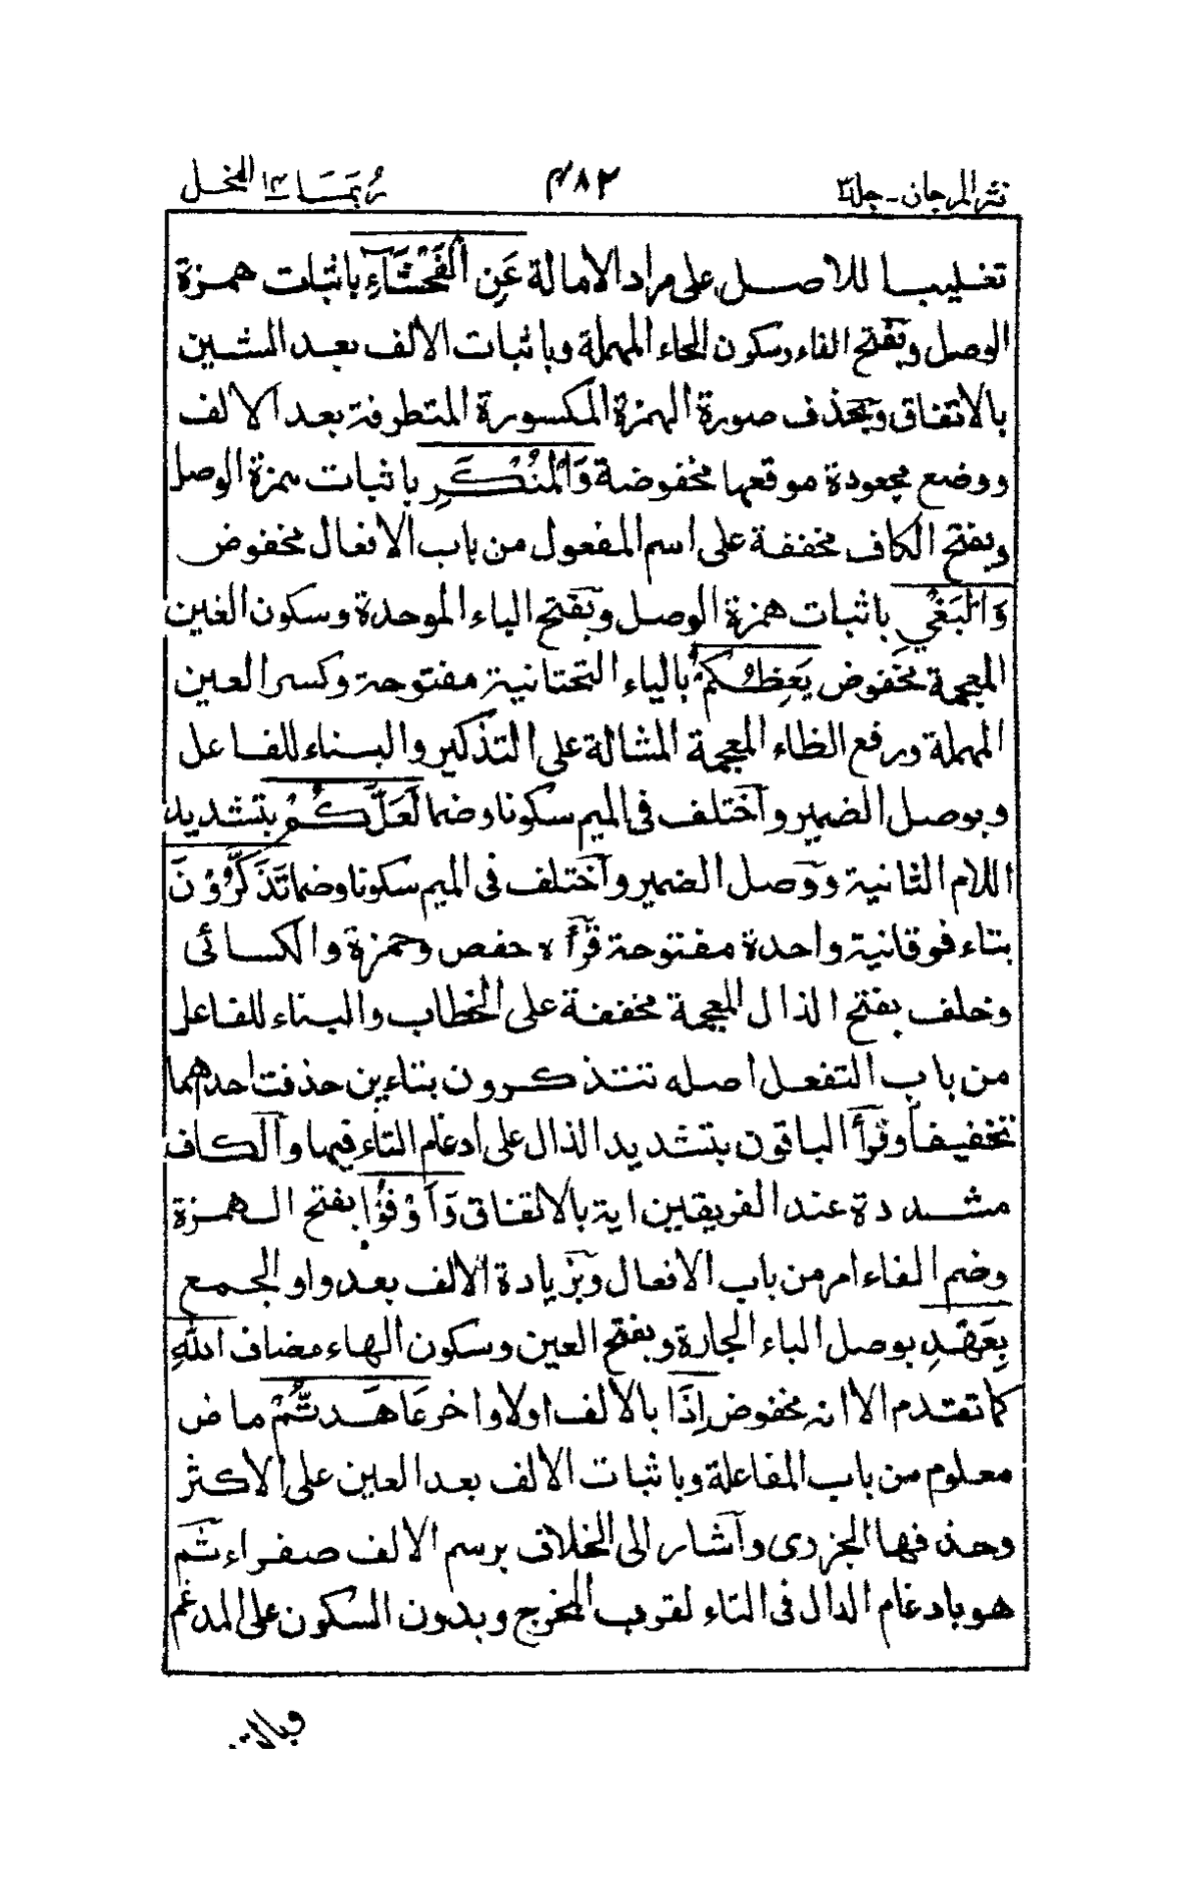 نثر المرجان - جلد ٣
٤٨٢
ربما ١٤ النحل
تغليبا للاصل على مراد الامالة عَنِ الْفَحْشَآءِ باثبات همزة
الوصل وبفتح الفاء وسكون الحاء المهملة وباثبات الالف بعد الشين
بالاتفاق وبحذف صورة الهمزة المكسورة المتطرفة بعد الالف
ووضع مجعودة موقعها مخفوضة وَالْمُنْكَرِ باثبات همزة الوصل
وبفتح الكاف مخففة على اسم المفعول من باب الافعال مخفوض
وَالْبَغْيِ باثبات همزة الوصل وبفتح الباء الموحدة وسكون الغين
المعجمة مخفوض يَعِظُكُمْ بالياء التحتانية مفتوحة وكسر العين
المهملة ورفع الظاء المعجمة المشالة على التذكير والبناء للفاعل
وبوصل الضمير واختلف فى الميم سكونا وضما لَعَلَّكُمْ بتشديد
اللام الثانية ووصل الضمير واختلف فى الميم سكونا وضما تَذَكَّرُوْنَ
بتاء فوقانية واحدة مفتوحة قرأه حفص وحمزة والكسائى
وخلف بفتح الذال المعجمة مخففة على الخطاب والبناء للفاعل
من باب التفعل اصله تتذكرون بتاءين حذفت احدهما
تخفيفا وقرأ الباقون بتشديد الذال على ادغام التاء فيها والكاف
مشددة عند الفريقين اية بالاتفاق وَاَوْفُوْا بفتح الهمزة
وضم الفاء امر من باب الافعال وبزيادة الالف بعد واو الجمع
بِعَهْدِ بوصل الباء الجارة وبفتح العين وسكون الهاء مضاف اللّٰهِ
كما تقدم الا انه مخفوض اِذَا بالالف اولا واخر عَاهَدتُّمْ ماض
معلوم من باب المفاعلة وباثبات الالف بعد العين على الاكثر
وحذفها الجزرى واشار الى الخلاف برسم الالف صفراء ثم
هو بادغام الدال فى التاء لقرب المخرج وبدون السكون على المدغم